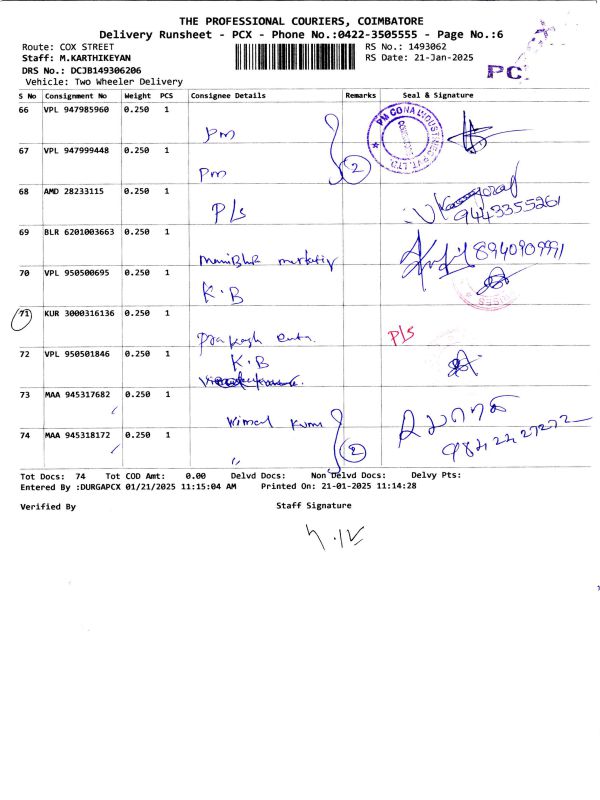 THE PROFESSIONAL COURIERS, COIMBATORE
Delivery Runsheet - PCX - Phone No.:0422-3505555 - Page No.:6
Route: COX STREET RS No.: 1493062
Staff: M.KARTHIKEYAN RS Date: 21-Jan-2025
DRS No.: DCJB149306206
PC
Vehicle: Two Wheeler Delivery
S No Consignment No Weight PCS Consignee Details Remarks Seal & Signature
66 VPL 947985960 0.250 1
Pm
PM CONA INDUSTRIES PVT. LTD.
67 VPL 947999448 0.250 1
Pm 2
68 AMD 28233115 0.250 1
P/s
9443355261
69 BLR 6201003663 0.250 1
8940909991
70 VPL 950500695 0.250 1
K.B
71 KUR 3000316136 0.250 1
Prakash P/s
72 VPL 950501846 0.250 1
K.B
73 MAA 945317682 0.250 1
Vimal Kumar
74 MAA 945318172 0.250 1
" 2
9842227272
Tot Docs: 74 Tot COD Amt: 0.00 Delvd Docs: Non Delvd Docs: Delvy Pts:
Entered By :DURGAPCX 01/21/2025 11:15:04 AM Printed On: 21-01-2025 11:14:28
Verified By Staff Signature